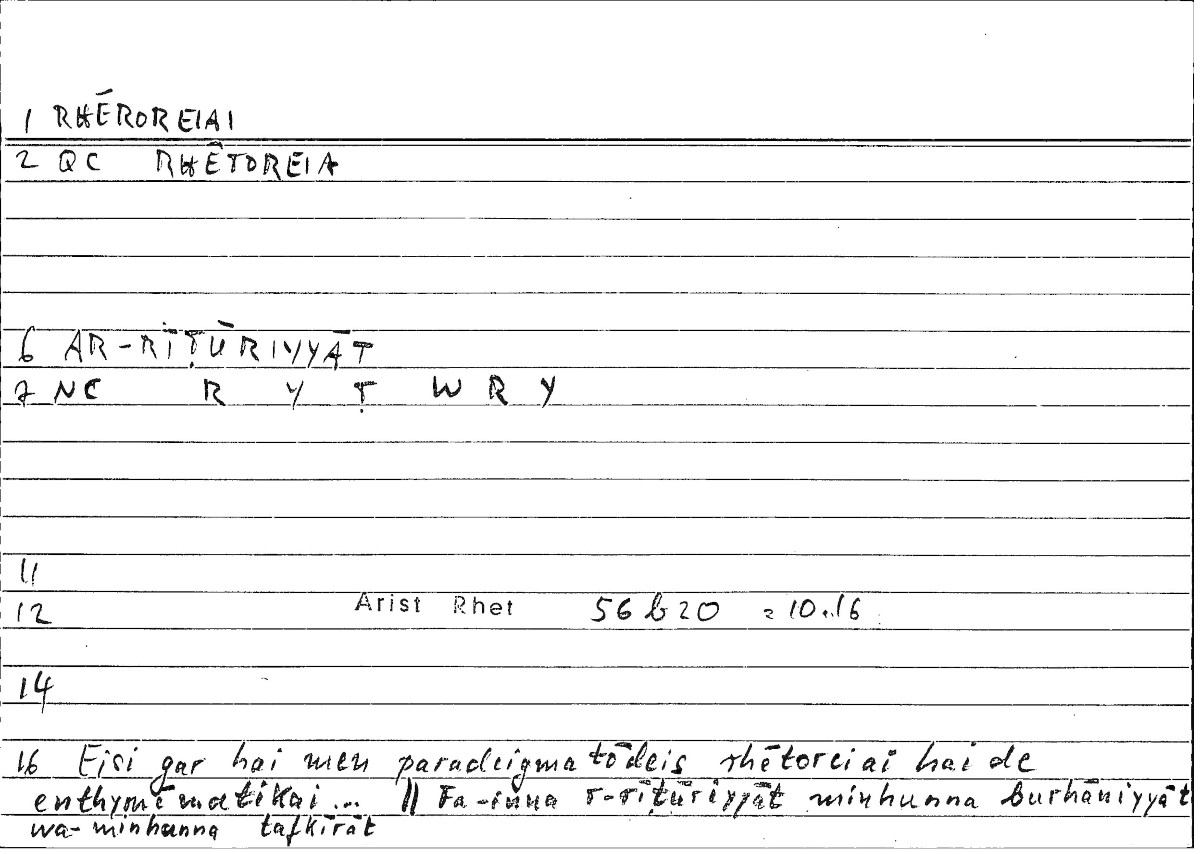 1 RHĒROREIAI
2 QC RHÊTOREIA
6 AR-RĪṬŪRIYYĀT
7 NC R Y Ṭ W R Y
11
12 Arist Rhet 56 b 20 = 10.16
14
16 Eisi gar hai men paradeigmatōdeis rhētoreiai hai de
enthymēmatikai ... || Fa-inna r-rīṭūriyyāt minhunna burhāniyyāt
wa-minhunna tafkīrāt